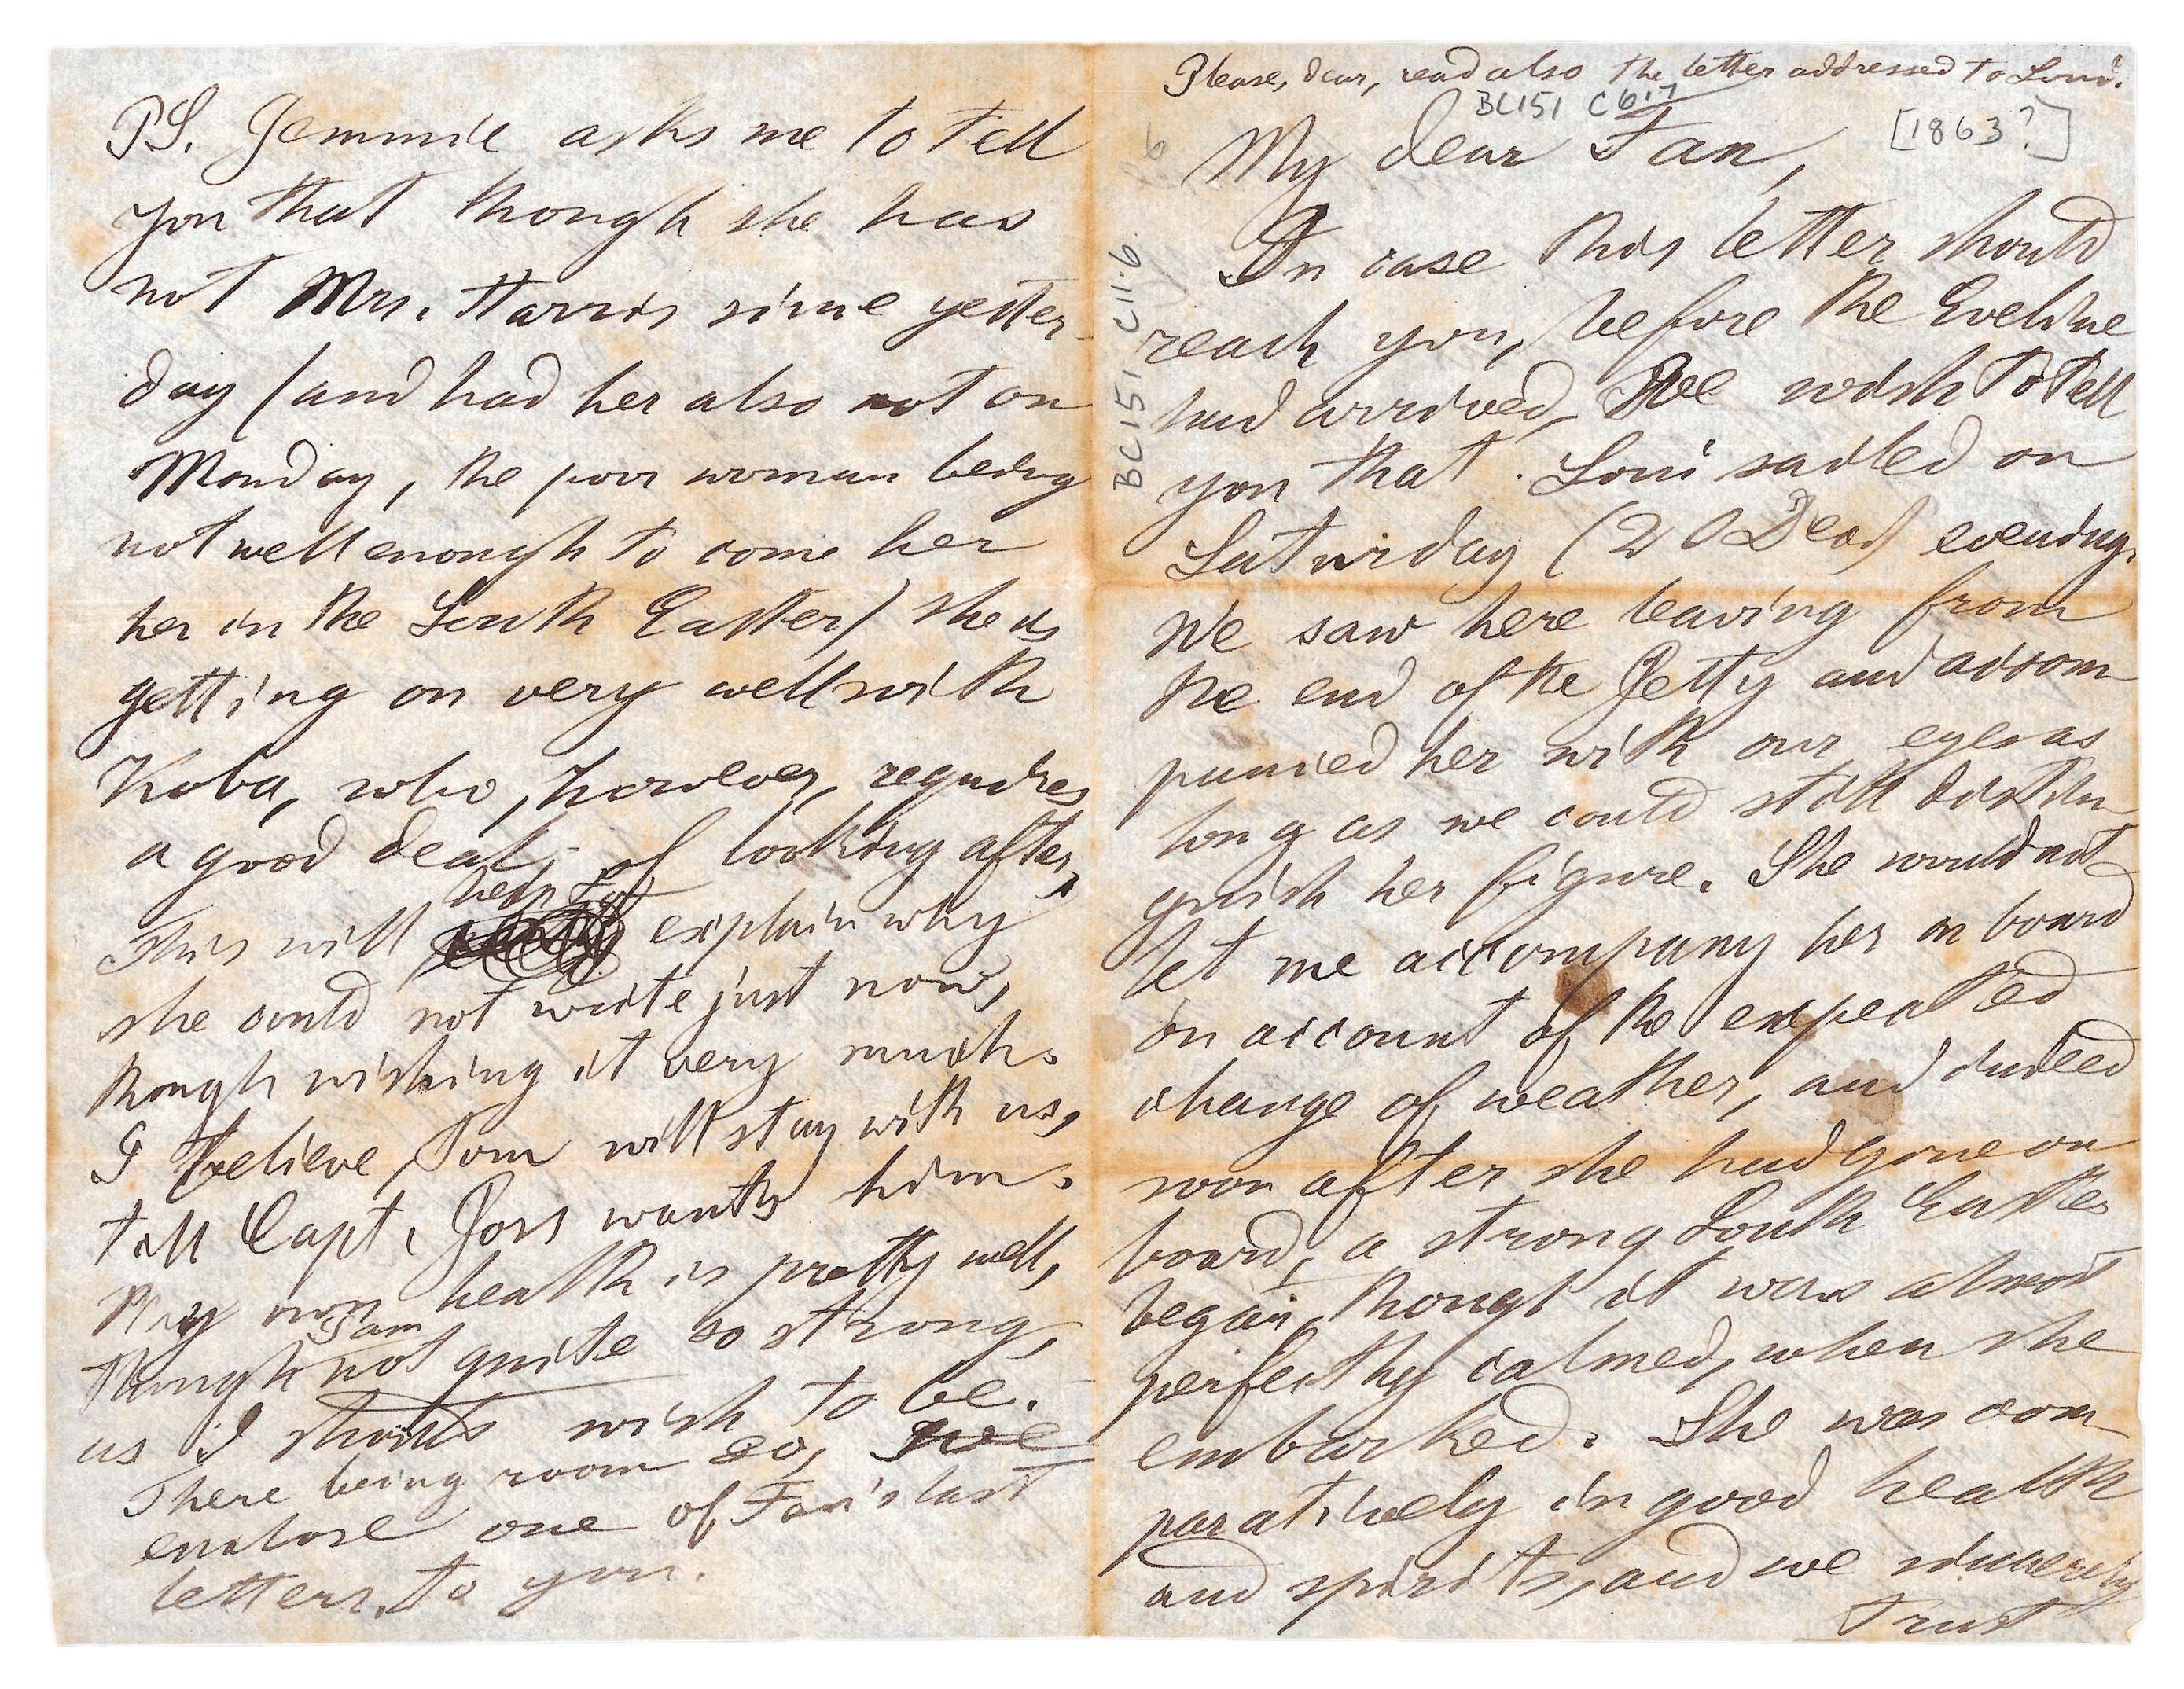 Please, dear, read also the letter addressed to Loui.
BC151 C6.17
My dear Fan,
[1863?]
In case this letter should
reach you, before the Eveline
had arrived, We wish to tell
you that Loui sailed on
Saturday (20 Dec.) evening.
We saw here leaving from
the end of the Jetty and accom
panied her with our eyes as
long as we could still distin
guish her figure. She would not
let me accompany her on board
on account of the expected
change of weather, and indeed
soon after she had gone on
board, a strong South Easter
began, though it was almost
perfectly calmed, when she
embarked. She was com
paratively in good health
and spirits, and we sincerely
trust
BC151 C11.6
PS. Jemmie asks me to tell
you that though she has
not Mrs. Harris since yester-
day (and had her also not on
Monday, the poor woman being
not well enough to come her
her in the South Easter) she is
getting on very well with
Koba, who, however, requires
a good deal of looking after,
help to
This will explain why
she could not write just now,
though wishing it very much.
I believe, Tom will stay with us,
till Capt. Joss wants him.
My own health is pretty well,
I am
though not quite so strong,
as I should wish to be.
There being room so, we
enclose one of Fan's last
letters to you.